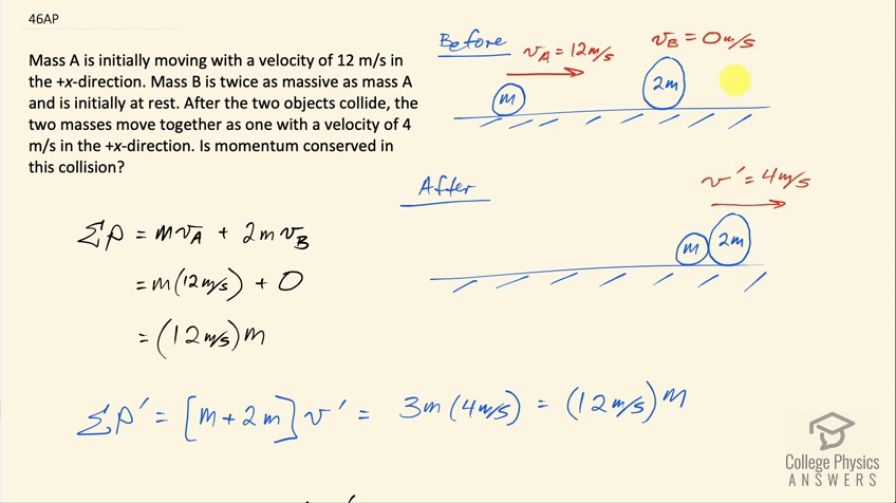 46AP
Mass A is initially moving with a velocity of 12 m/s in
the +x-direction. Mass B is twice as massive as mass A
and is initially at rest. After the two objects collide, the
two masses move together as one with a velocity of 4
m/s in the +x-direction. Is momentum conserved in
this collision?
Before
v_A = 12m/s
v_B = 0m/s
m
2m
After
v' = 4m/s
m 2m
Σp = mv_A + 2mv_B
= m(12m/s) + 0
= (12m/s)m
Σp' = [m+2m]v' = 3m(4m/s) = (12m/s)m
College Physics
ANSWERS